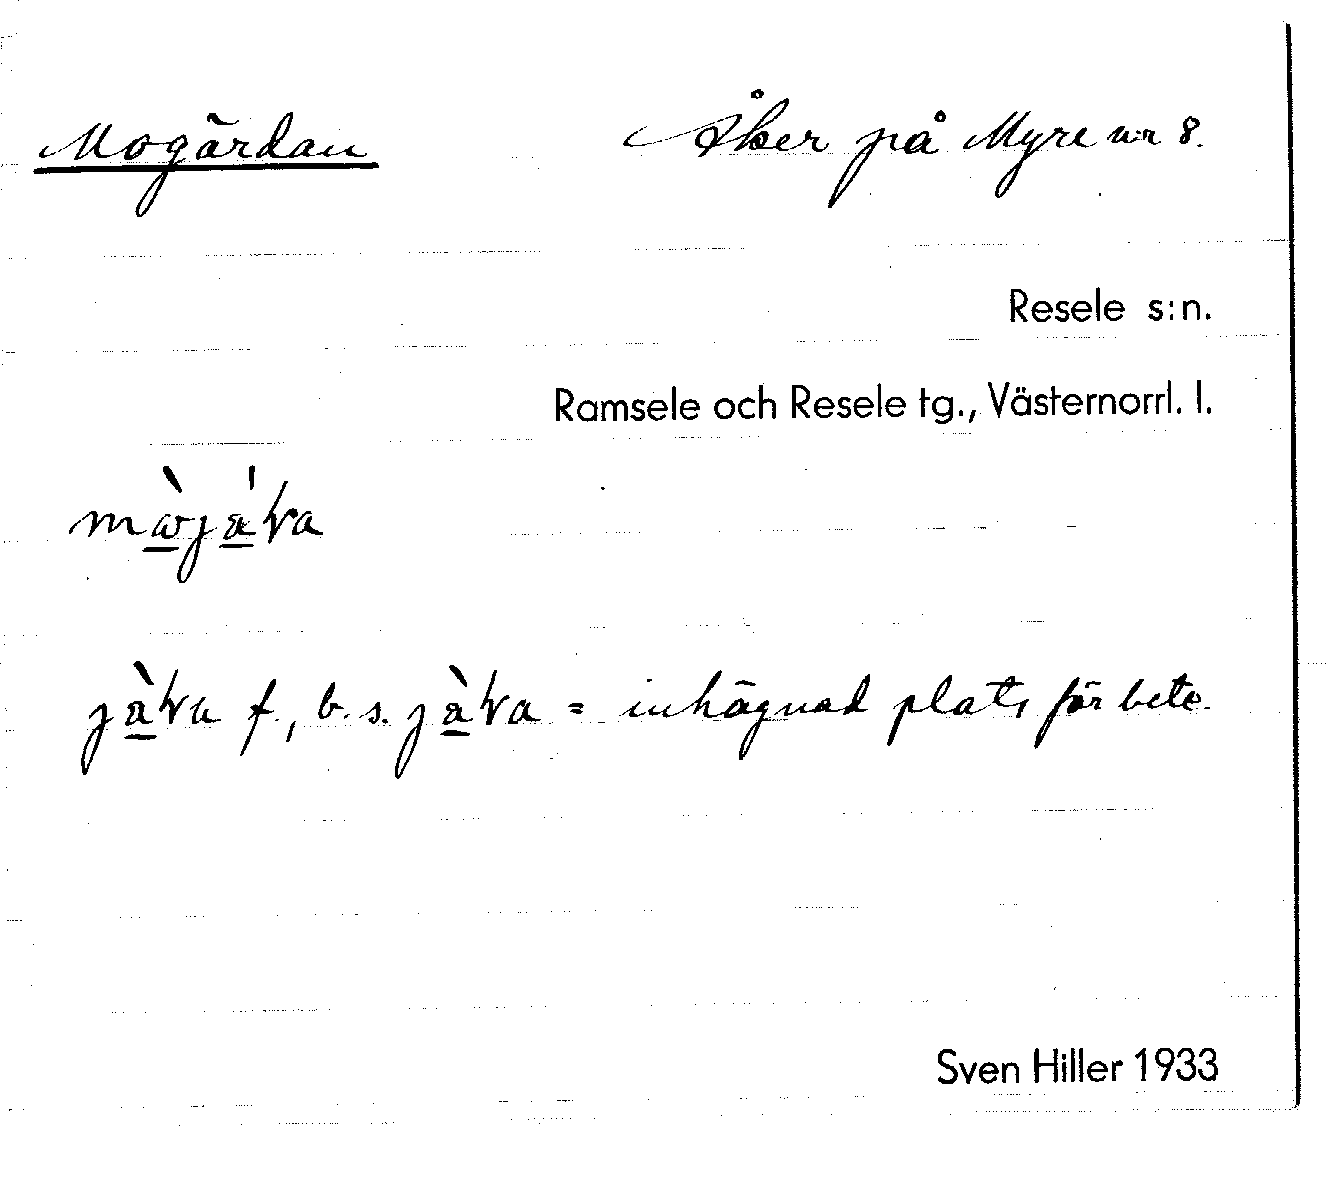 Mogärdan Åker på Myre n:r 8.
Resele s:n.
Ramsele och Resele tg., Västernorrl. l.
f., b. s. = inhägnad plats för bete.
Sven Hiller 1933